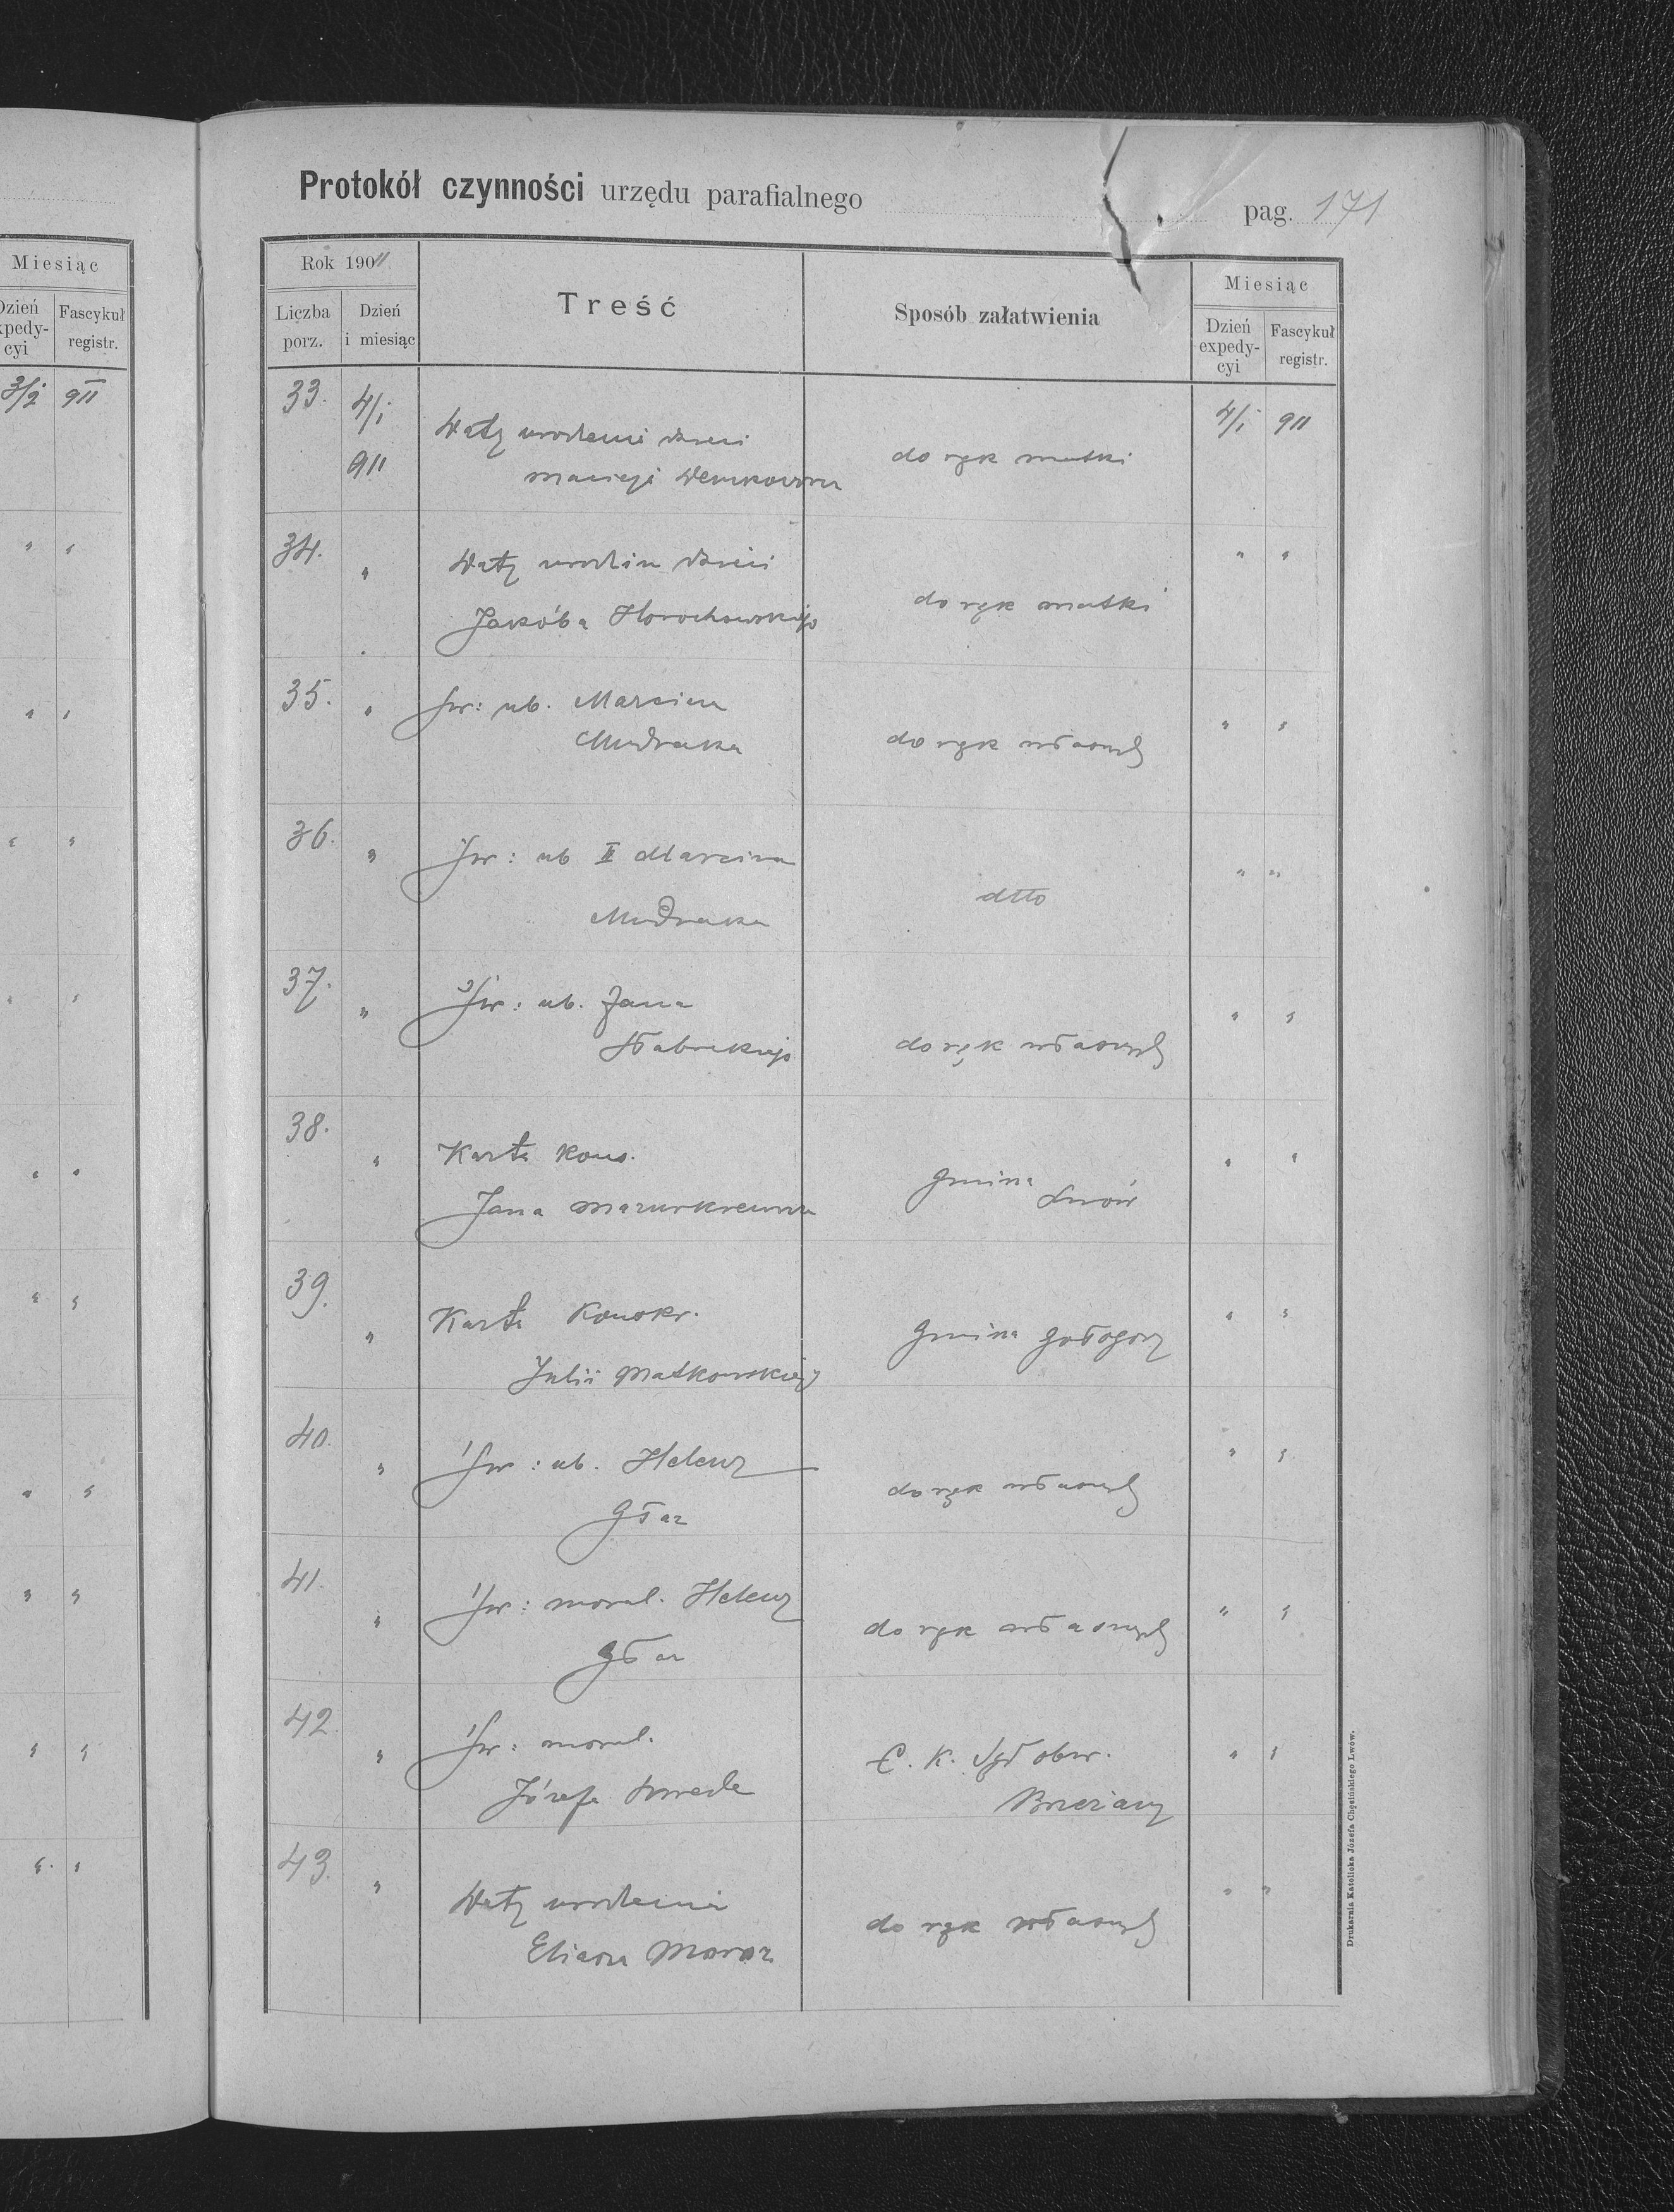 Miesiąc
Dzień expedycyi
Fascykuł registr.
3/2 911
Protokół czynności urzędu parafialnego
pag. 171
Rok 1911
Liczba porz.
Dzień i miesiąc
Treść
Sposób załatwienia
Miesiąc
Dzień expedycyi
Fascykuł registr.
33. 4/i 911
Daty urodzenia dzieci
Macieja
do ręk matki
4/i 911
34. "
Daty urodzin dzieci
Jakóba Horochowskiego
do ręk matki
" "
35. "
św: ub. Marcina
Mudraka
do ręk własnych
" "
36. "
Św: ub II Marcina
Mudraka
dtto
" "
37. "
Św: ub. Jana
do ręk własnych
" "
38. "
Karta kons.
Jana Mazurkiewicza
gmina Lwów
" "
39. "
Karta Konskr.
Julii Matkowskiej
gmina Gołogóry
" "
40. "
Św: ub. Heleny
Głaz
do ręk własnych
" "
41. "
Św: moral. Heleny
Głaz
do ręk własnych
" "
42. "
Św: moral.
Józefa
C. K. Sąd obw.
Brzeżany
" "
43. "
Daty urodzenia
Eliasza Moroz
do ręk własnych
" "
Drukarnia Katolicka Józefa Chęcińskiego Lwów.